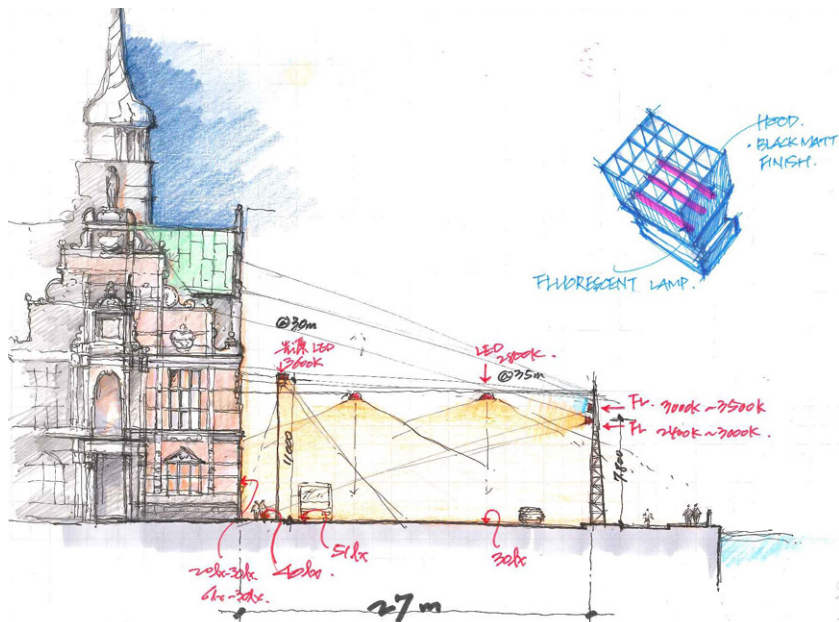 HOOD.
· BLACK MATT
FINISH.
FLUORESCENT LAMP.
@30m
光源 LED
3600K
LED
2800K.
@35m
FL. 3000K~3500K
FL 2400K~3000K.
11,000
7,800
20lx-30lx.
40lx.
51lx
30lx
27m